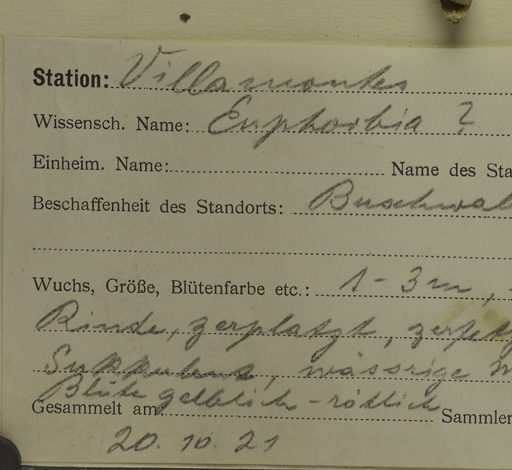 Station: Villamontes
Wissensch. Name: Euphorbia ?
Einheim. Name: Name des Sta
Beschaffenheit des Standorts: Buschwal
Wuchs, Größe, Blütenfarbe etc.: 1-3m,
Rinde, zerplatzt, zerfetz
wässrige
Blüte gelblich-rötlich
Gesammelt am: Sammler
20. 10. 21